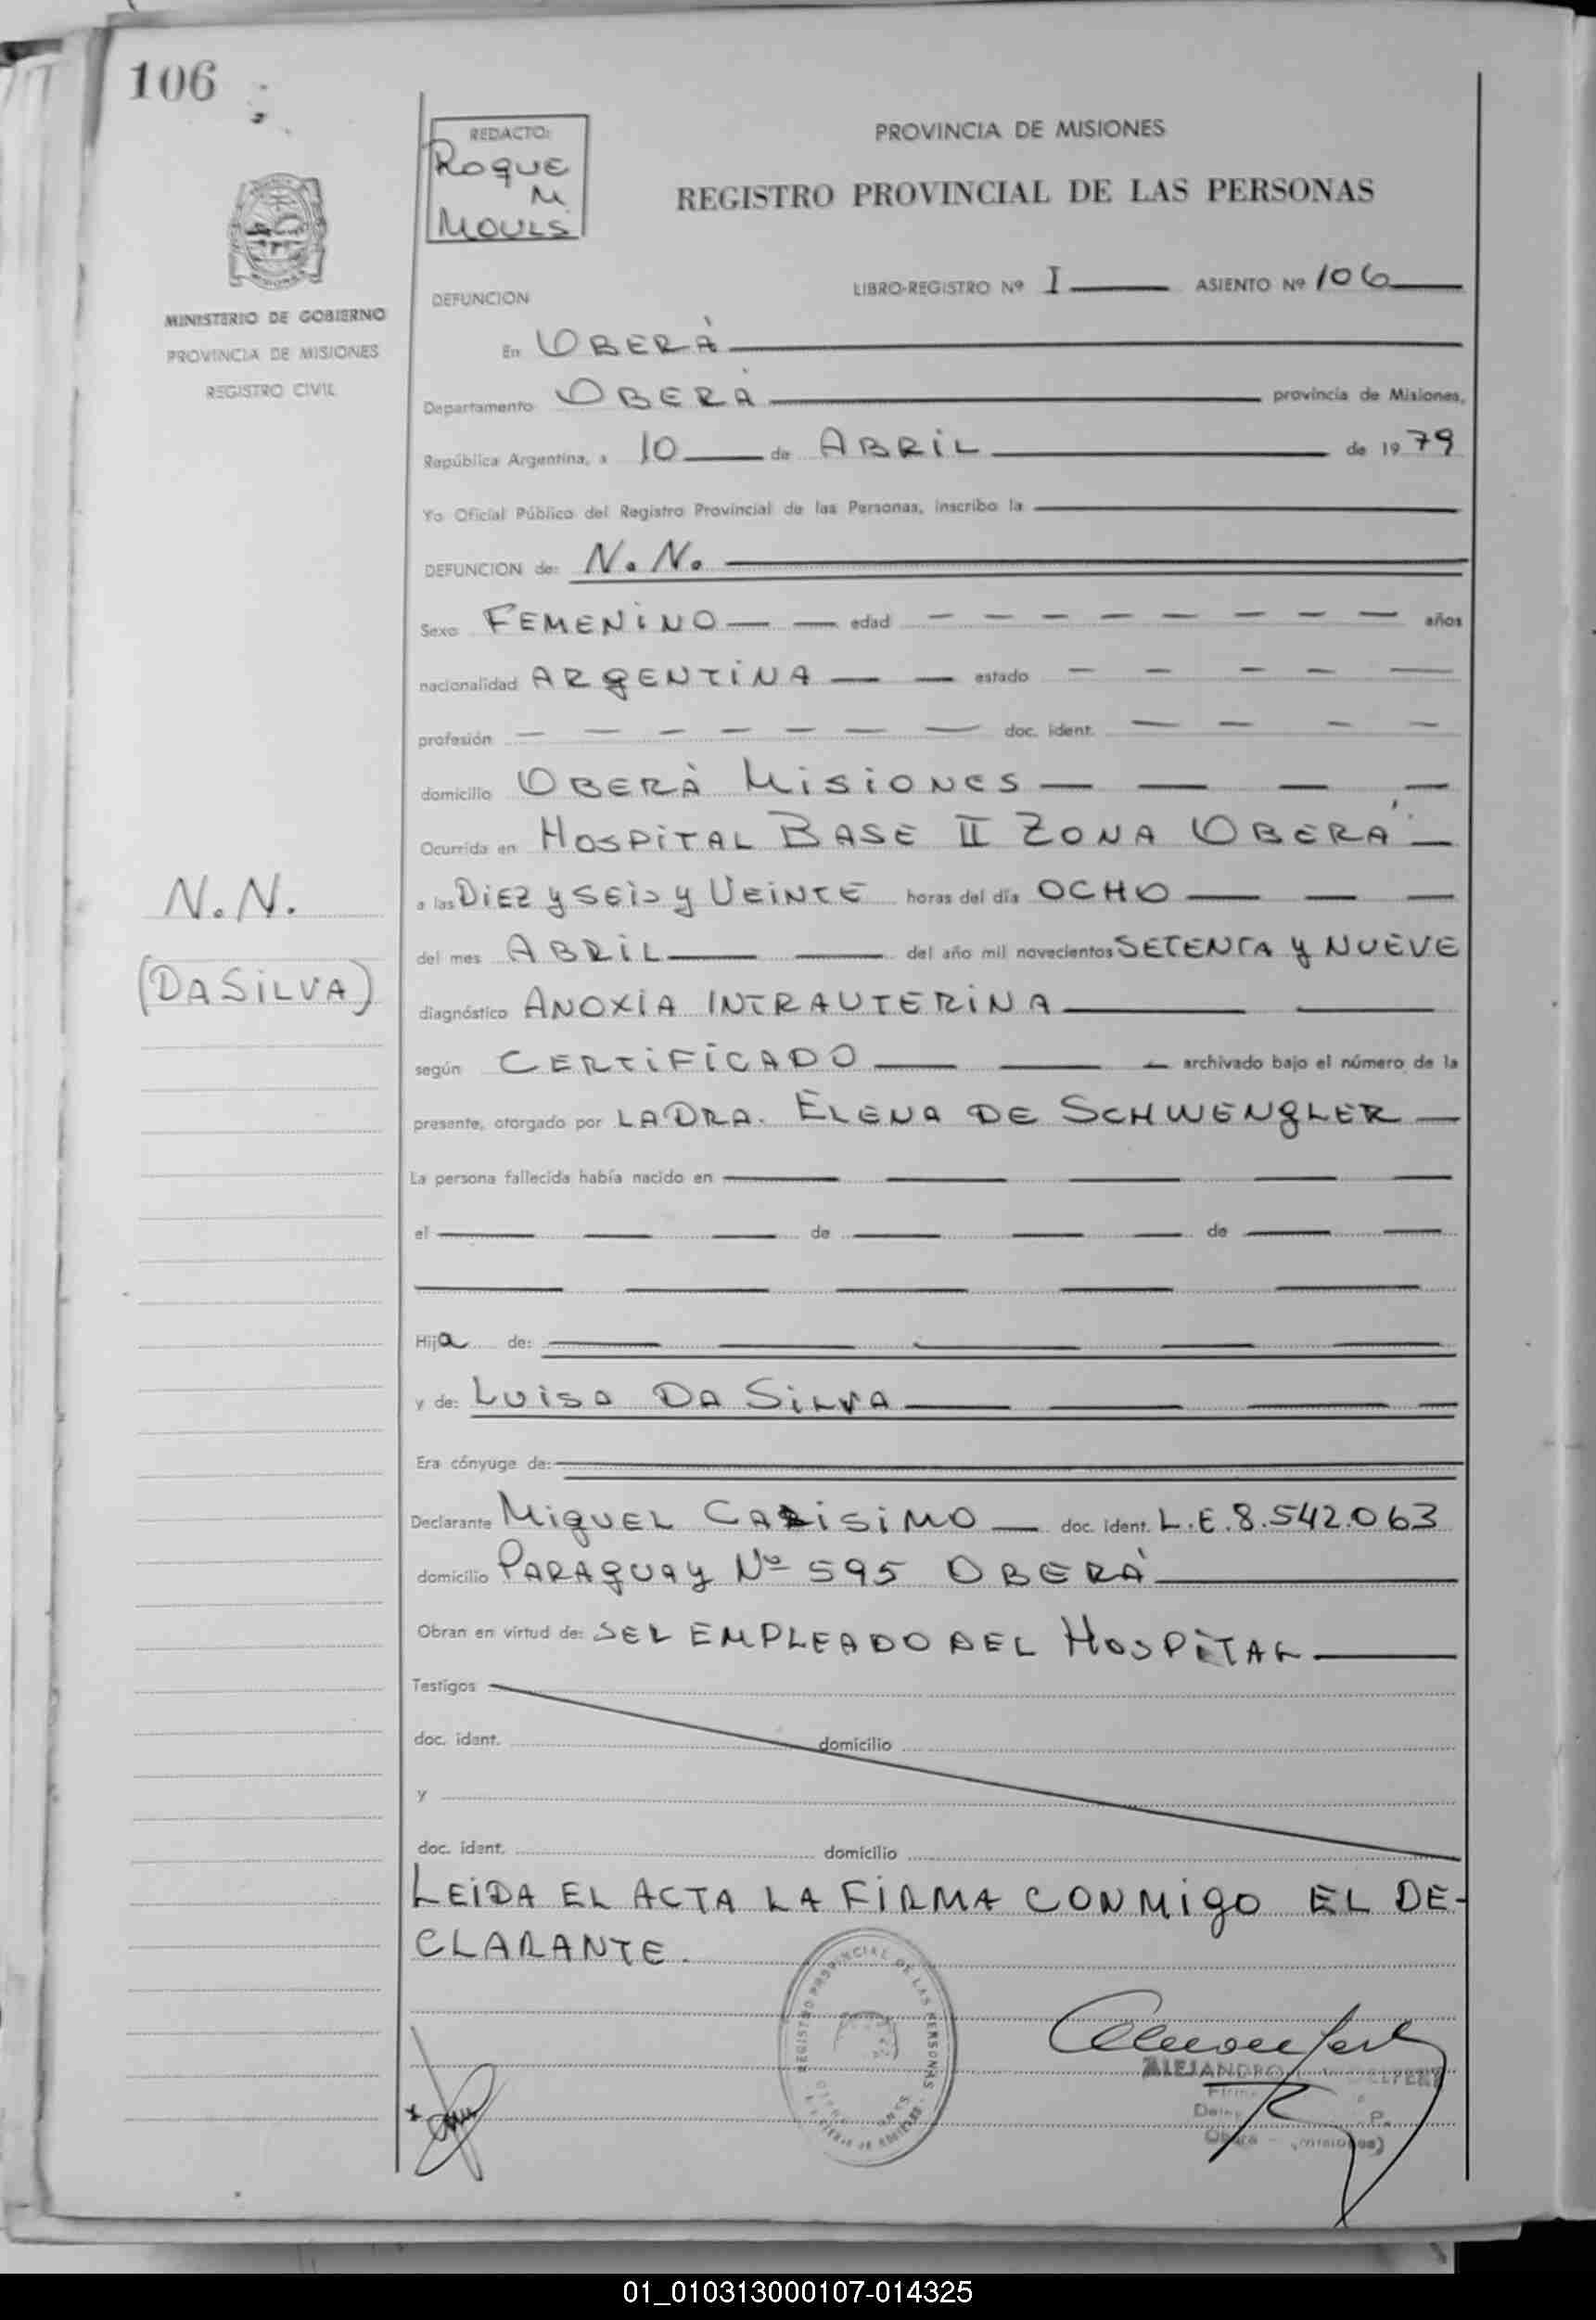 106
REDACTO:
ROQUE
M
MOULS
PROVINCIA DE MISIONES
REGISTRO PROVINCIAL DE LAS PERSONAS
MINISTERIO DE GOBIERNO
PROVINCIA DE MISIONES
REGISTRO CIVIL
LIBRO-REGISTRO Nº I ASIENTO Nº 106
DEFUNCION
En OBERÁ
Departamento OBERÁ provincia de Misiones,
República Argentina, a 10 de ABRIL de 1979
Yo Oficial Público del Registro Provincial de las Personas, inscribo la
DEFUNCION de: N. N.
Sexo FEMENINO edad años
nacionalidad ARGENTINA estado
profesión doc. ident.
domicilio OBERÁ MISIONES
Ocurrida en HOSPITAL BASE II ZONA OBERÁ
N.N.
a las DIEZ y SEIS y VEINTE horas del día OCHO
del mes ABRIL del año mil novecientos SETENTA y NUEVE
(DA SILVA)
diagnóstico ANOXIA INTRAUTERINA
según CERTIFICADO archivado bajo el número de la
presente, otorgado por LA DRA. ELENA DE SCHWENGLER
La persona fallecida había nacido en
el de de
Hija de:
y de: LUISA DA SILVA
Era cónyuge de:
Declarante MIGUEL CARISIMO doc. ident. L.E. 8.542.063
domicilio PARAGUAY Nº 595 OBERÁ
Obran en virtud de: SER EMPLEADO DEL HOSPITAL
Testigos
doc. ident. domicilio
y
doc. ident. domicilio
LEIDA EL ACTA LA FIRMA CONMIGO EL DE-
CLARANTE.
REGISTRO PROVINCIAL DE LAS PERSONAS
ALEJANDRO
01_010313000107-014325